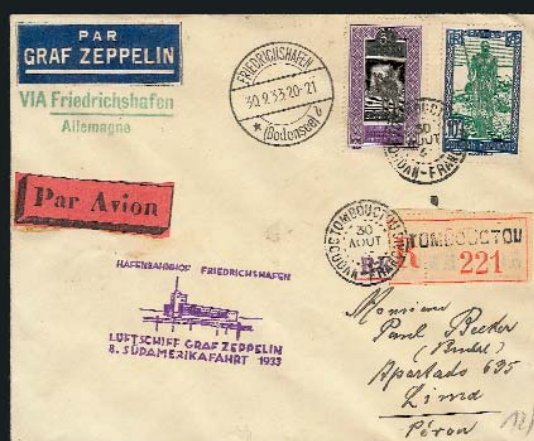 PAR
GRAF ZEPPELIN
VIA Friedrichshafen
Allemagne
Par Avion
FRIEDRICHSHAFEN
30.9.33.20-21
(Bodensee)
10F
30
AOUT
SOUDAN-FRANÇAIS
TOMBOUCTOU
30
AOUT
SOUDAN FRANÇAIS
R
TOMBOUCTOU
221
HAFENBAHNHOF FRIEDRICHSHAFEN
LUFTSCHIFF GRAF ZEPPELIN
8. SÜDAMERIKAFAHRT 1933
Monsieur
Paul Becker
Apartado 695
Lima
Pérou